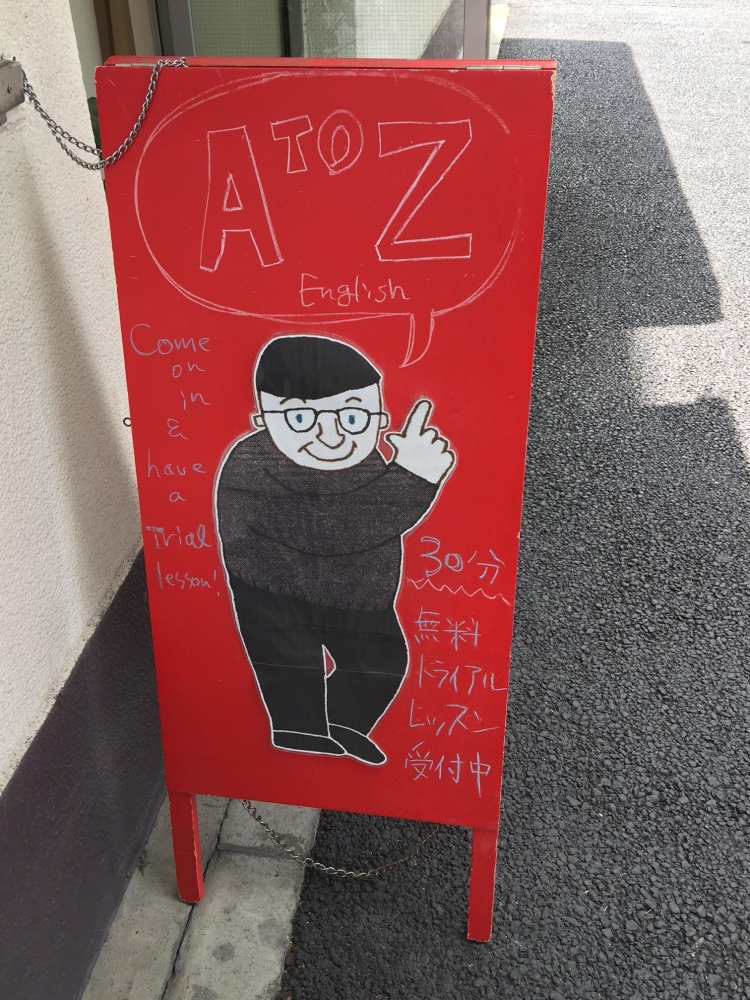 A TO Z
English
Come
on
in
&
have
a
Trial
lesson!
30分
無料
トライアル
レッスン
受付中